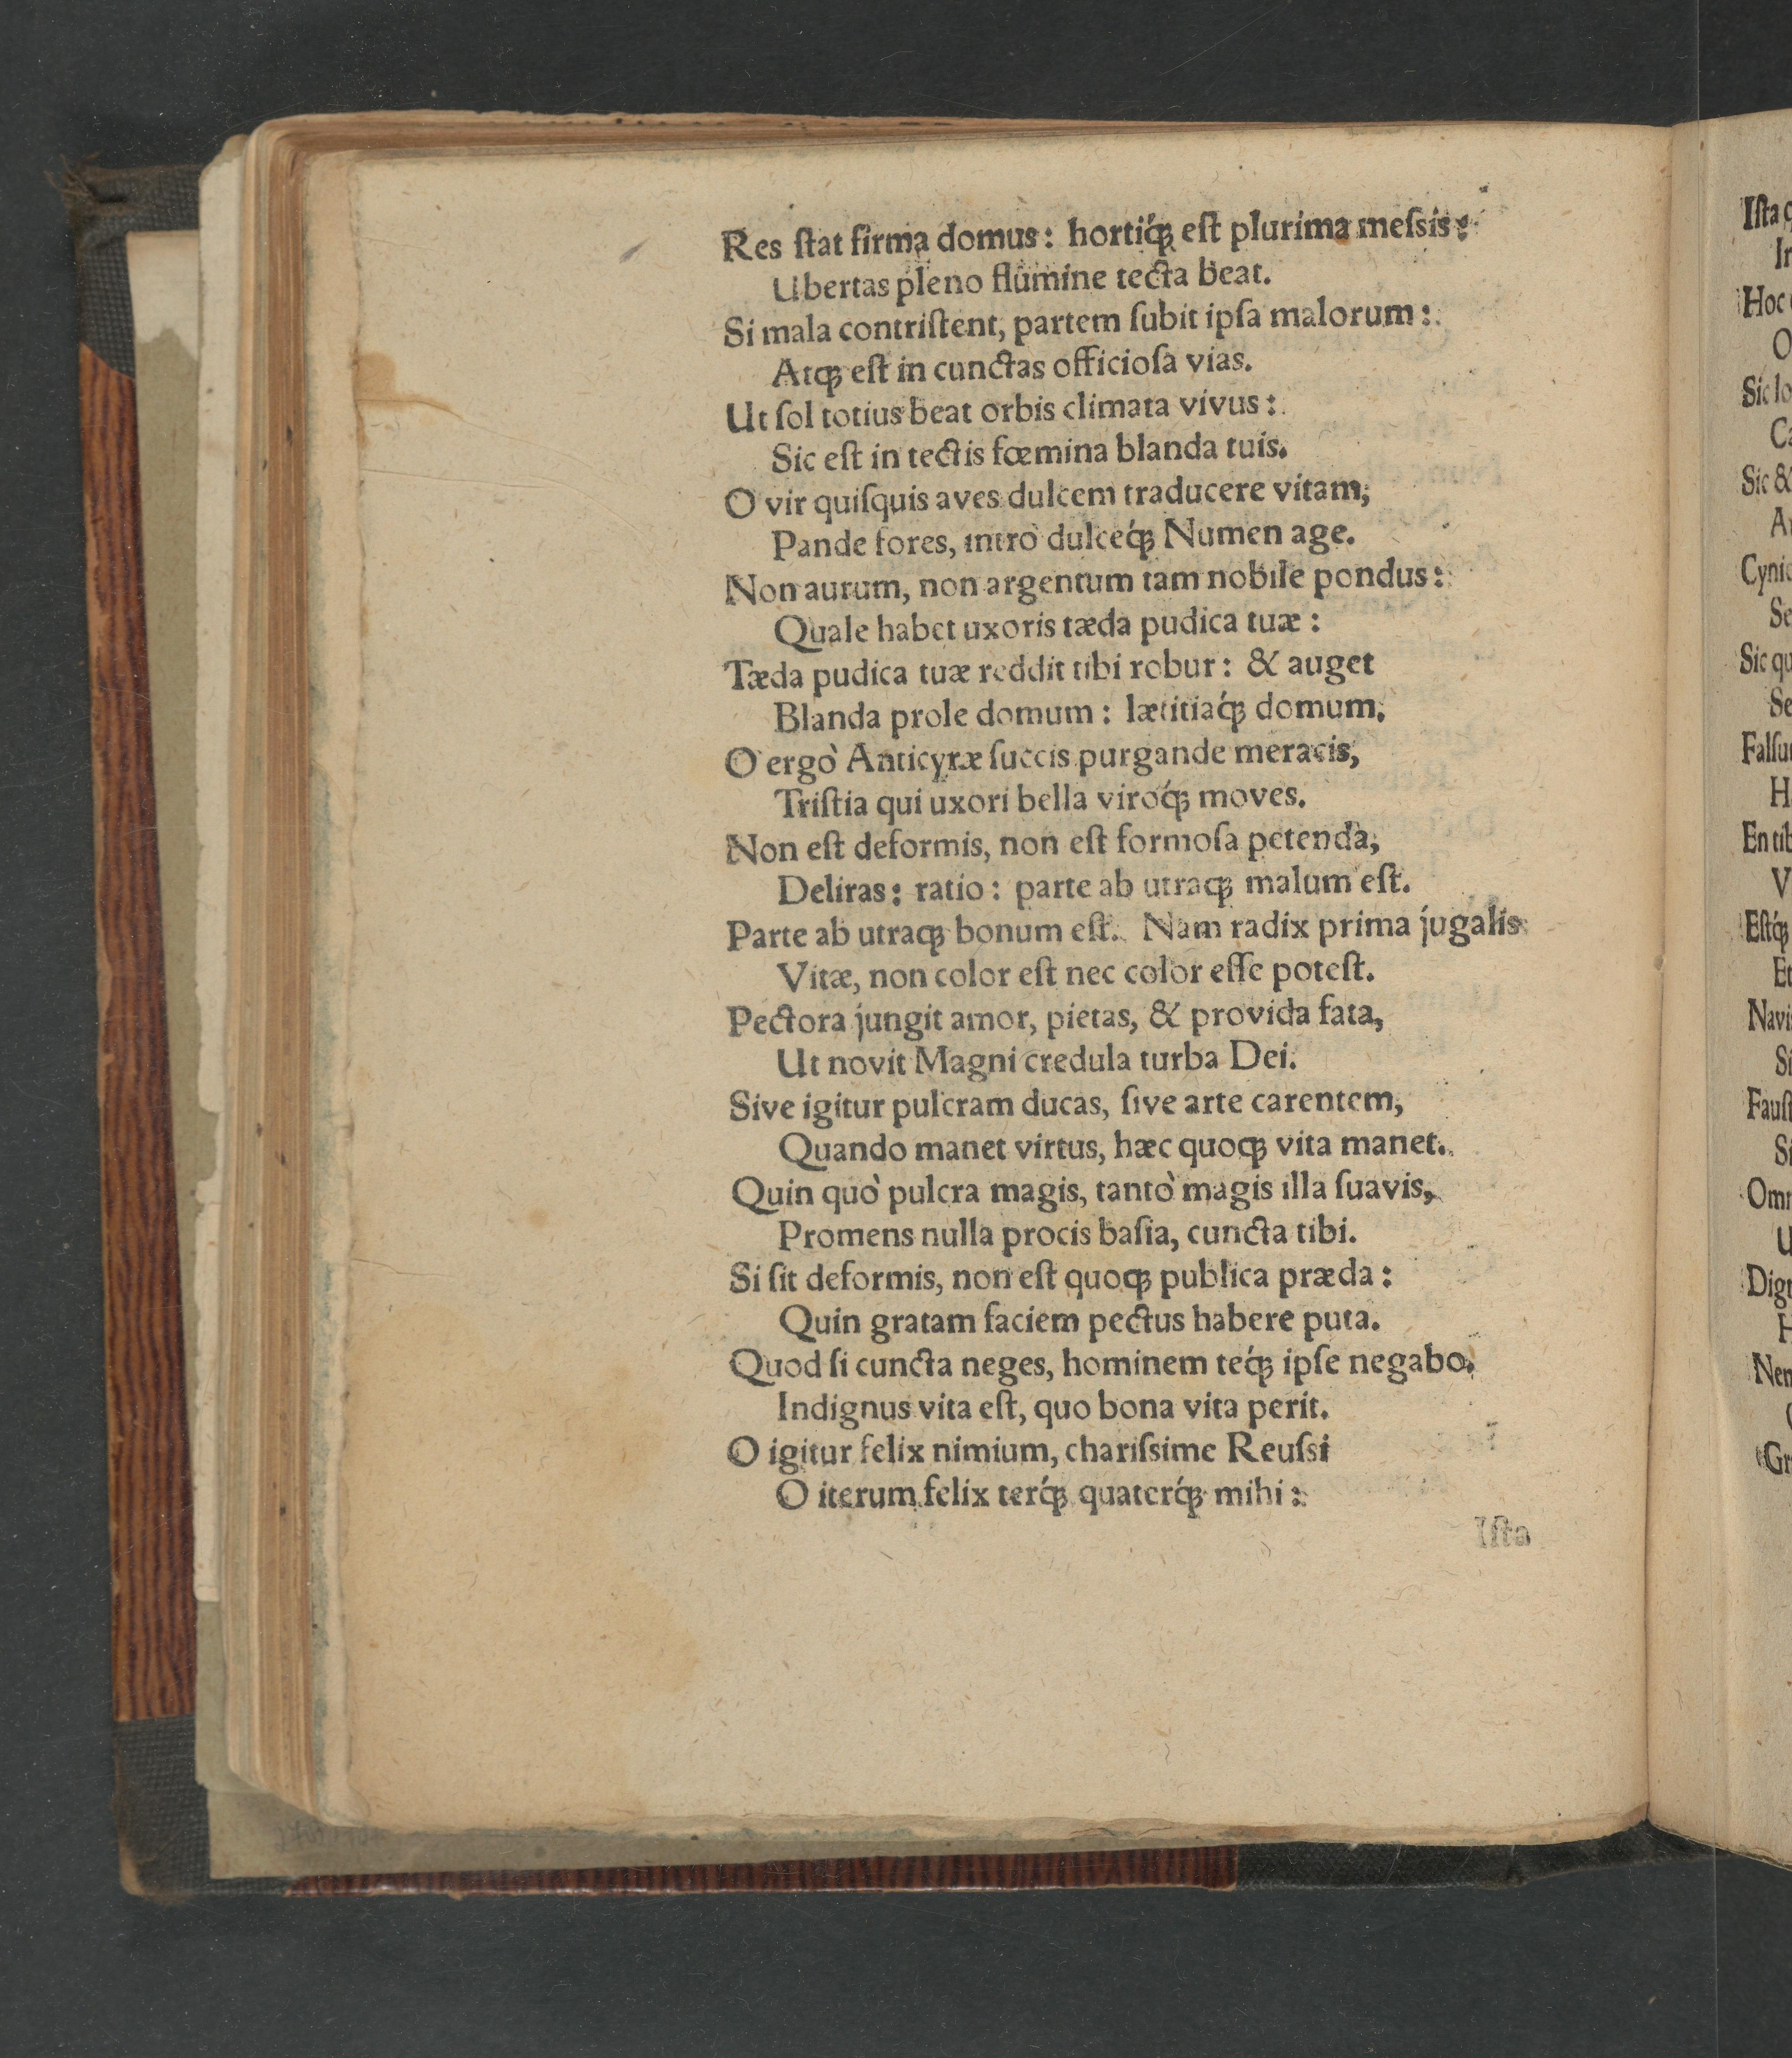 Res ſtat firma domus: hortiq́ꝫ eſt plurima meſsis:
Ubertas pleno flumine tecta beat.
Si mala contriſtent, partem ſubit ipſa malorum:
Atqꝫ eſt in cunctas officioſa vias.
Ut ſol totius beat orbis climata vivus:
Sic eſt in tectis fœmina blanda tuis.
O vir quiſquis aves dulcem traducere vitam,
Pande fores, intrò dulceq́ꝫ Numen age.
Non aurum, non argentum tam nobile pondus:
Quale habet uxoris tæda pudica tuæ:
Tæda pudica tuæ reddit tibi robur: & auget
Blanda prole domum: lætitiaq́ꝫ domum.
O ergò Anticyræ ſuccis purgande meracis,
Triſtia qui uxori bella viroq́ꝫ moves.
Non eſt deformis, non eſt formoſa petenda,
Deliras: ratio: parte ab utraqꝫ malum eſt.
Parte ab utraqꝫ bonum eſt. Nam radix prima jugalis
Vitæ, non color eſt nec color eſſe poteſt.
Pectora jungit amor, pietas, & provida fata,
Ut novit Magni credula turba Dei.
Sive igitur pulcram ducas, ſive arte carentem,
Quando manet virtus, hæc quoqꝫ vita manet.
Quin quò pulcra magis, tantò magis illa ſuavis,
Promens nulla procis baſia, cuncta tibi.
Si ſit deformis, non eſt quoqꝫ publica præda:
Quin gratam faciem pectus habere puta.
Quod ſi cuncta neges, hominem teq́ꝫ ipſe negabo.
Indignus vita eſt, quo bona vita perit.
O igitur felix nimium, chariſsime Reuſsi
O iterum felix terq́ꝫ quaterq́ꝫ mihi:
Iſta
Iſta
Hoc
Sic
Sic &
Se
Sic
Se
Et
Si